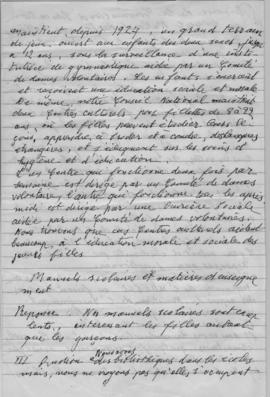 maintient, depuis 1927, un grand terrain
de jeux, ouvert aux enfants des deux sexes jusqu'
à 12 ans, sous la surveillance d'une insti-
tutrice de gymnastique aidée par un Comité
de dames volontaires. Les enfants s'exercent
et reçoivent une éducation sociale et morale
De même, notre Conseil National maintient
deux Centres culturels pour fillettes de 8 à
ans, où les filles peuvent étudier leurs le-
çons, apprendre à broder et à coudre, des langues
étrangères, et s'éduquent sur les soins et
hygiène et d'éducation.
L'un Centre qui fonctionne deux fois par
semaine est dirigé par un Comité de dames
volontaires, l'autre qui fonctionne tous les après
midi est dirigé par une ouvrière sociale
aidée par un Comité de dames volontaires.
Nous trouvons que ces Centres culturels aident
beaucoup, à l'éducation morale et sociale des
jeunes filles
Manuels scolaires et matières d'enseigne
ment
Réponse: Nos manuels scolaires sont
intéressant les filles autant
que les garçons.
III Question Nous avons des bibliothèques dans les écoles
mais, nous ne voyons pas qu'elles s'occupent